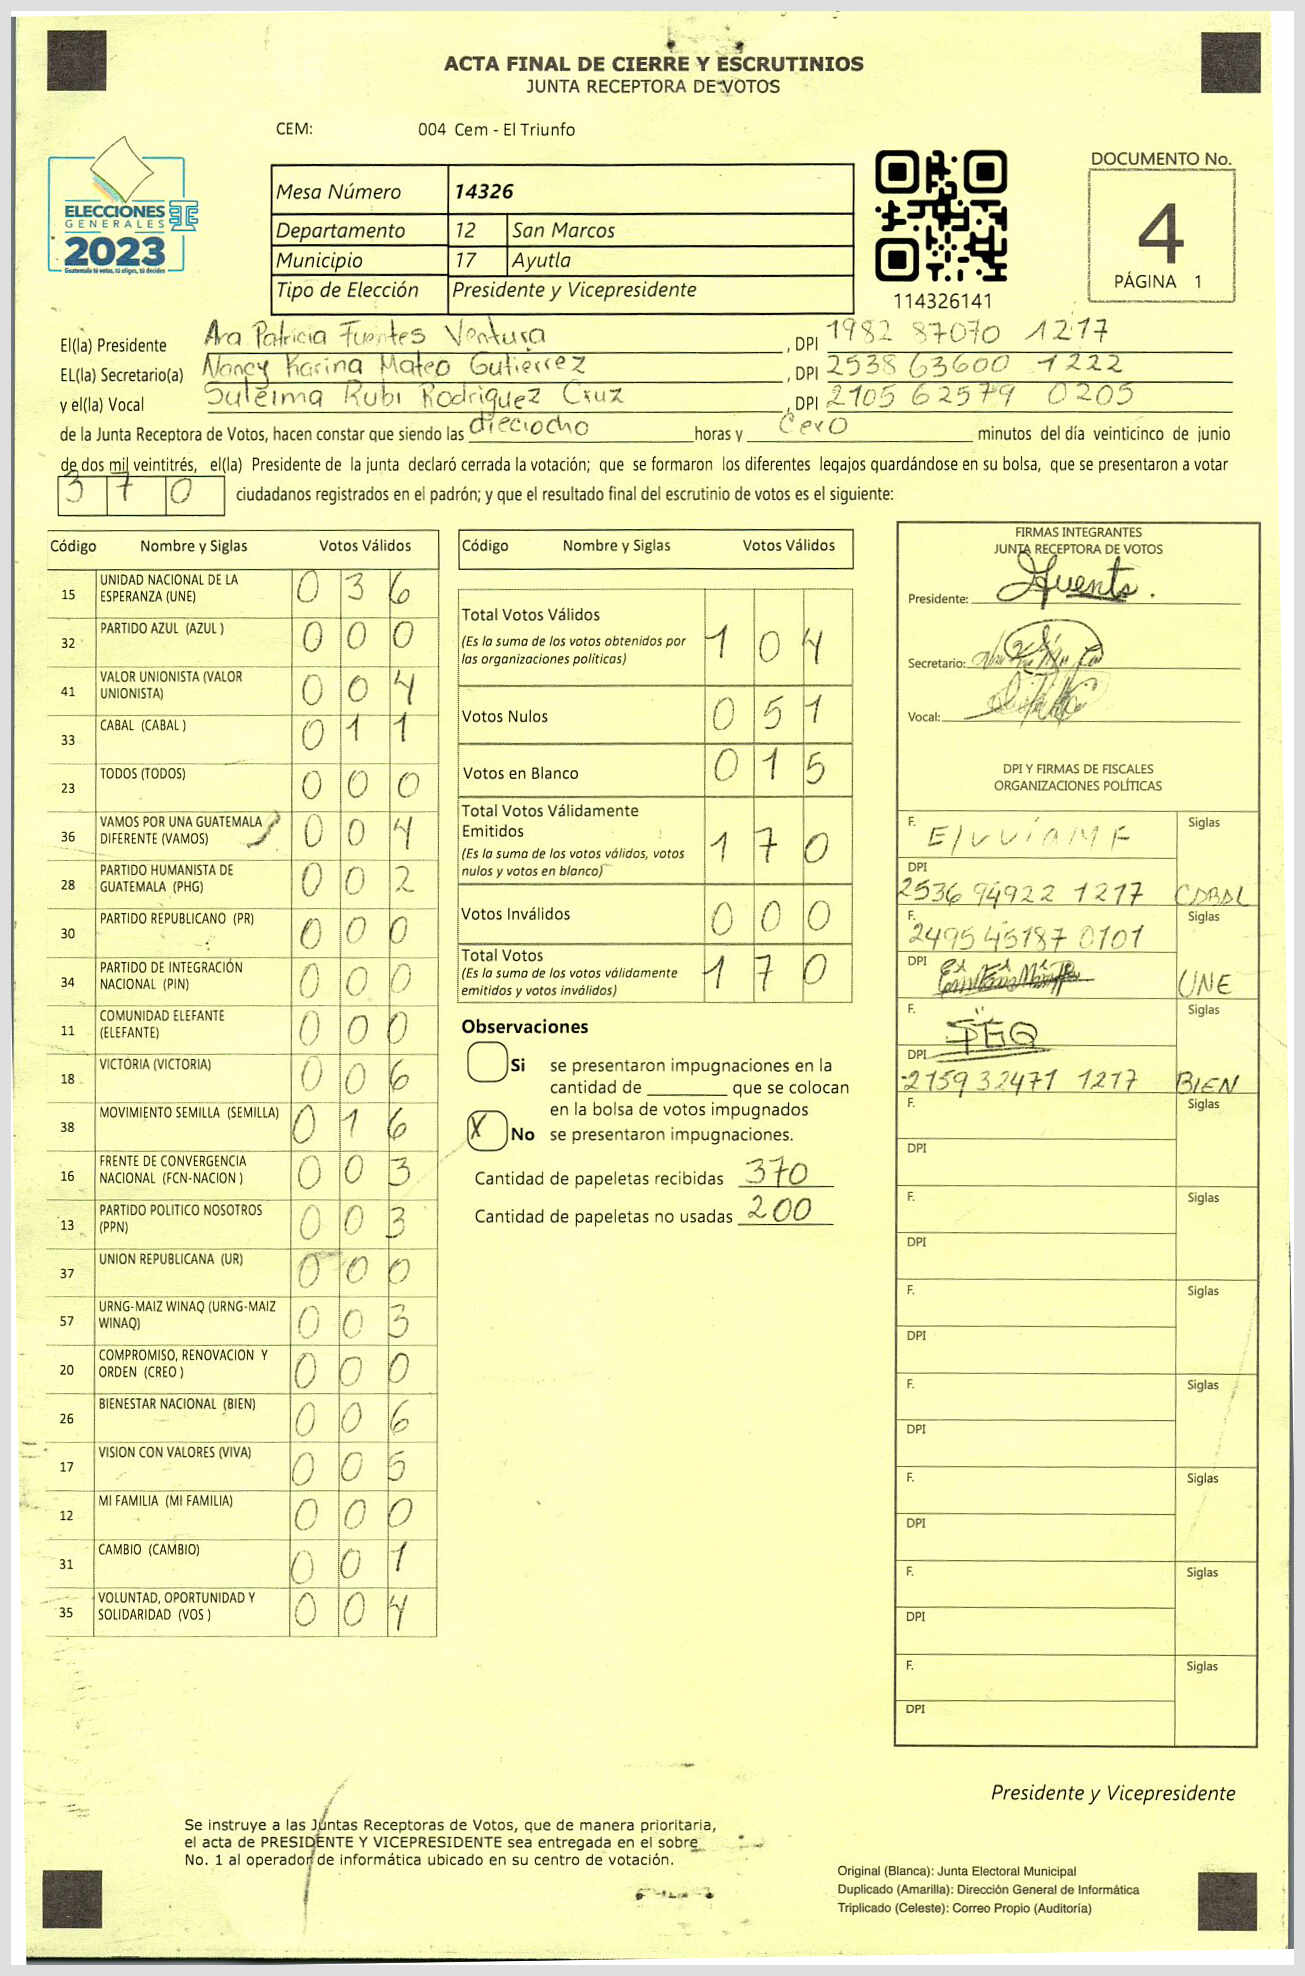 ACTA FINAL DE CIERRE Y ESCRUTINIOS
JUNTA RECEPTORA DE VOTOS
CEM: 004 Cem - El Triunfo
ELECCIONES
GENERALES
2023
Guatemala tú votas, tú eliges, tú decides
Mesa Número 14326
Departamento 12 San Marcos
Municipio 17 Ayutla
Tipo de Elección Presidente y Vicepresidente
114326141
DOCUMENTO No.
4
PÁGINA 1
El(la) Presidente Ana Patricia Fuentes Ventura, DPI 1982 87070 1217
EL(la) Secretario(a) Nancy Karina Mateo Gutiérrez, DPI 2538 63600 1222
y el(la) Vocal Suleima Rubi Rodriguez Cruz, DPI 2105 62579 0205
de la Junta Receptora de Votos, hacen constar que siendo las dieciocho horas y Cero minutos del día veinticinco de junio
de dos mil veintitrés, el(la) Presidente de la junta declaró cerrada la votación; que se formaron los diferentes legajos guardándose en su bolsa, que se presentaron a votar
370 ciudadanos registrados en el padrón; y que el resultado final del escrutinio de votos es el siguiente:
Código Nombre y Siglas Votos Válidos
15 UNIDAD NACIONAL DE LA ESPERANZA (UNE) 0 3 6
32 PARTIDO AZUL (AZUL ) 0 0 0
41 VALOR UNIONISTA (VALOR UNIONISTA) 0 0 4
33 CABAL (CABAL ) 0 1 1
23 TODOS (TODOS) 0 0 0
36 VAMOS POR UNA GUATEMALA DIFERENTE (VAMOS) 0 0 4
28 PARTIDO HUMANISTA DE GUATEMALA (PHG) 0 0 2
30 PARTIDO REPUBLICANO (PR) 0 0 0
34 PARTIDO DE INTEGRACIÓN NACIONAL (PIN) 0 0 0
11 COMUNIDAD ELEFANTE (ELEFANTE) 0 0 0
18 VICTORIA (VICTORIA) 0 0 6
38 MOVIMIENTO SEMILLA (SEMILLA) 0 1 6
16 FRENTE DE CONVERGENCIA NACIONAL (FCN-NACION ) 0 0 3
13 PARTIDO POLITICO NOSOTROS (PPN) 0 0 3
37 UNION REPUBLICANA (UR) 0 0 0
57 URNG-MAIZ WINAQ (URNG-MAIZ WINAQ) 0 0 3
20 COMPROMISO, RENOVACION Y ORDEN (CREO ) 0 0 0
26 BIENESTAR NACIONAL (BIEN) 0 0 6
17 VISION CON VALORES (VIVA) 0 0 5
12 MI FAMILIA (MI FAMILIA) 0 0 0
31 CAMBIO (CAMBIO) 0 0 1
35 VOLUNTAD, OPORTUNIDAD Y SOLIDARIDAD (VOS ) 0 0 4
Código Nombre y Siglas Votos Válidos
Total Votos Válidos 1 0 4
(Es la suma de los votos obtenidos por
las organizaciones políticas)
Votos Nulos 0 5 1
Votos en Blanco 0 1 5
Total Votos Válidamente
Emitidos 1 7 0
(Es la suma de los votos válidos, votos
nulos y votos en blanco)
Votos Inválidos 0 0 0
Total Votos 1 7 0
(Es la suma de los votos válidamente
emitidos y votos inválidos)
Observaciones
Si se presentaron impugnaciones en la
cantidad de ________ que se colocan
en la bolsa de votos impugnados
X No se presentaron impugnaciones.
Cantidad de papeletas recibidas 370
Cantidad de papeletas no usadas 200
FIRMAS INTEGRANTES
JUNTA RECEPTORA DE VOTOS
Presidente:
Secretario:
Vocal:
DPI Y FIRMAS DE FISCALES
ORGANIZACIONES POLÍTICAS
F. Siglas
DPI
2536 94922 1217 CABAL
F. 2495 45187 0101 Siglas
DPI UNE
F. Siglas
DPI
2159 32471 1217 BIEN
F. Siglas
DPI
F. Siglas
DPI
F. Siglas
DPI
F. Siglas
DPI
F. Siglas
DPI
F. Siglas
DPI
F. Siglas
DPI
Presidente y Vicepresidente
Se instruye a las Juntas Receptoras de Votos, que de manera prioritaria,
el acta de PRESIDENTE Y VICEPRESIDENTE sea entregada en el sobre
No. 1 al operador de informática ubicado en su centro de votación.
Original (Blanca): Junta Electoral Municipal
Duplicado (Amarilla): Dirección General de Informática
Triplicado (Celeste): Correo Propio (Auditoría)